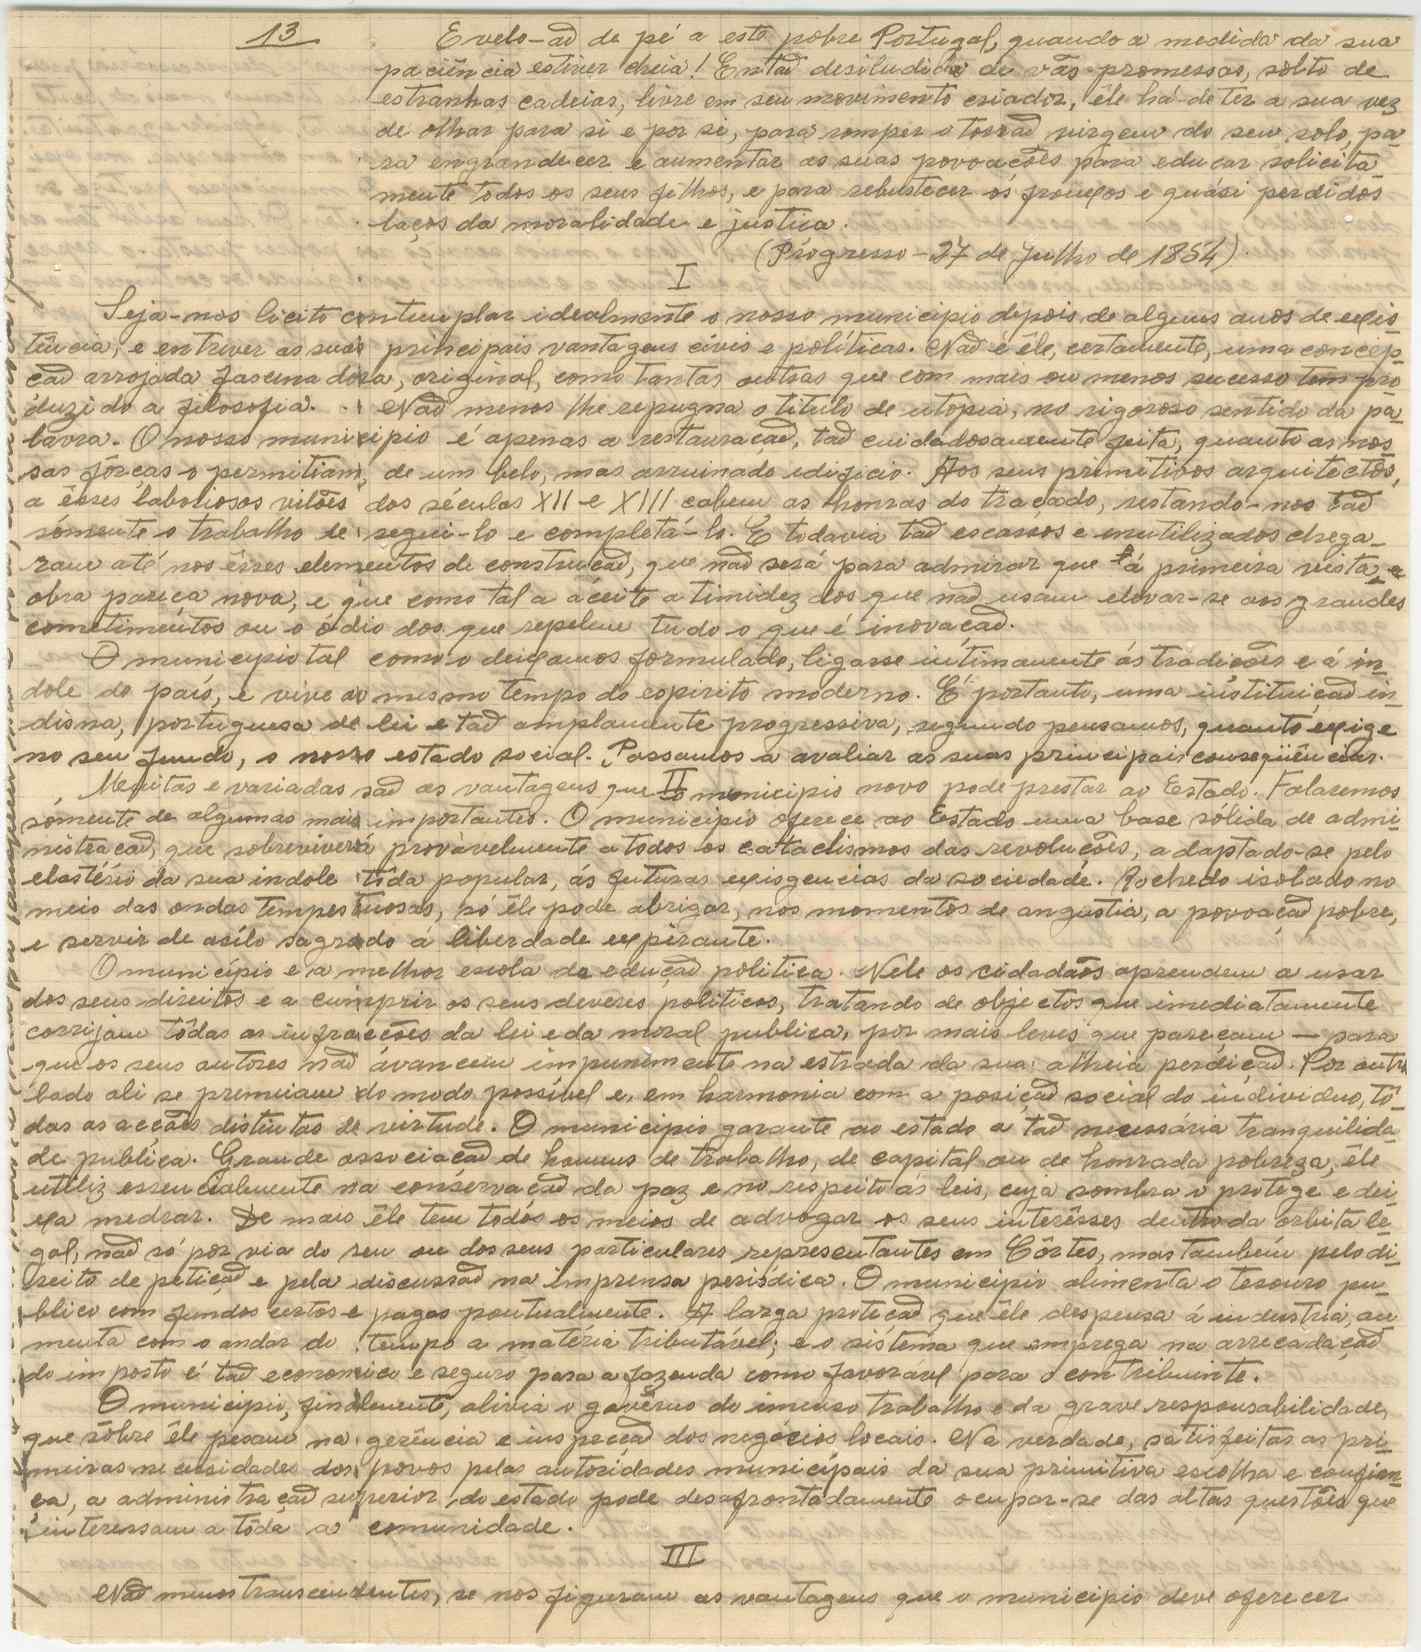 13
E velo-aõ de pé a este pobre Portugal, quando a medida da sua
paciência estiver cheia! Entaõ desiludido de vãs promessas, solto de
estranhas cadeias, livre em seu movimento criador, êle há-de ter a sua vez
de olhar para si e por si, para romper o torraõ virgem do seu solo, pa-
ra engrandecer e aumentar as suas povoações para educar solicita
mente todos os seus filhos, e para robustecer os frouxos e quási perdidos
laços da moralidade e justiça.
(Progresso - 27 de Julho de 1854).
I
Seja-nos licito contemplar idealmente o nosso municipio depois de alguns anos de exis
tência, e entrever as suas principais vantagens civis e políticas. Naõ é êle, certamente, uma concep-
çaõ arrojada fascinadora, original, como tantas outras que com mais ou menos sucesso tem pro
duzido a filosofia. Naõ menos lhe repugna o titulo de utopia, no rigoroso sentido da pa-
lavra. O nosso municipio é apenas a restauraçaõ, taõ cuidadosamente feita, quanto as nos-
sas fôrças o permitiam, de um belo, mas arruinado edificio. Aos seus primitivos arquitectos,
a êsses laboriosos vilões dos séculos XII e XIII cabem as honras do traçado, restando-nos taõ
sómente o trabalho de segui-lo e completá-lo. E todavia taõ escassos e inutilizados chega-
ram até nos êsses elementos de construçaõ, que naõ será para admirar que á primeira vista a
obra pareça nova, e que como tal a aceite a timidez dos que naõ usam elevar-se aos grandes
cometimentos ou o odio dos que repelem tudo o que é inovaçaõ.
O municipio tal como o deixamos formulado, ligasse intimamente ás tradições e á ín-
dole do país, e vive ao mesmo tempo do espirito moderno. É portanto, uma instituiçaõ in-
disna, portuguesa de lei e taõ amplamente progressiva, segundo pensamos, quanto exige
no seu fundo, o nosso estado social. Passamos a avaliar as suas principais conseqüências.
II
Muitas e variadas saõ as vantagens que o municipio novo pode prestar ao Estado. Falaremos
sómente de algumas mais importantes. O municipio oferece ao Estado uma base sólida de admi-
nistraçaõ, que sobreviverá provàvelmente a todos os cataclismos das revoluções, adaptado-se pelo
elastério da sua indole tôda popular, ás futuras exisgencias da sociedade. Rochedo isolado no
meio das ondas tempestuosas, só êle pode abrigar, nos momentos de angustia, a povoaçaõ pobre,
e servir de asilo sagrado á liberdade expirante.
O município e a melhor escola de educaçaõ politica. Nele os cidadaõs aprendem a usar
dos seus direitos e a cumprir os seus deveres politicos, tratando de objectos que imediatamente
corrijam tôdas as infracções da lei e da moral publica, por mais leves que pareçam — para
que os seus autores naõ avancem impunimente na estrada da sua alheia perdiçaõ. Por outro
lado ali se premeiam do modo possível e, em harmonia com a posiçaõ social do individuo, tô-
das as acções distintas de virtude. O municipio garante ao estado a taõ necessária tranquilida-
de publica. Grande associaçaõ de homens de trabalho, de capital ou de honrada pobreza, êle
utiliz essencialmente na conservaçaõ da paz e no respeito ás leis, cuja sombra o protege e dei-
xa medrar. De mais êle tem todos os meios de advogar os seus interêsses dentro da orbita le-
gal, naõ só por via do seu ou dos seus particulares representantes em Côrtes, mas também pelo di-
reito de petiçaõ e pela discussaõ na imprensa periódica. O municipio alimenta o tesouro pu-
blico com fundos certos e pagos pontualmente. A larga proteçaõ que êle despensa á industria, au
menta com o andar do tempo a materia tributável; e o sistema que emprega na arrecadaçaõ
do imposto é taõ economico e seguro para a fazenda como favorável para o contribuinte.
O municipio, finalmente, alivia o govêrno do imenso trabalho e da grave responsabilidade,
que sôbre êle pesam na gerência e inspecçaõ dos negócios locais. Na verdade, satisfeitas as pri-
meiras necessidades dos povos pelas autoridades municipais da sua primitiva escolha e confian-
ça, a administraçaõ superior do estado pode desafrontadamente ocupar-se das altas questões que
interessam a tôda a comunidade.
III
Naõ menos transcendentes, se nos figuram as vantagens que o municipio deve oferecer